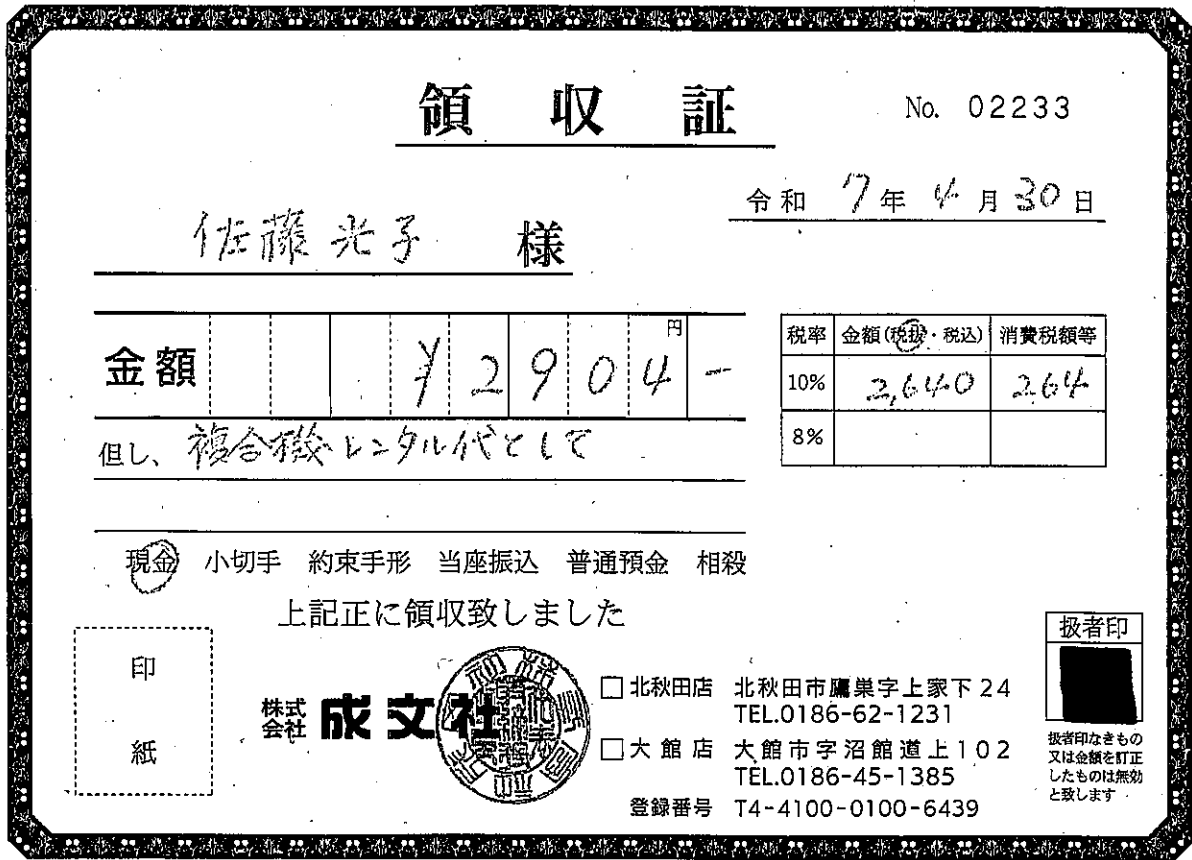 領収証
No. 02233
令和 7年 4月 30日
佐藤光子 様
金額 ¥2904- 円
税率 金額(税抜・税込) 消費税額等
10% 2,640 264
8%
但し、複合機レンタル代として
現金 小切手 約束手形 当座振込 普通預金 相殺
上記正に領収致しました
印紙
株式会社 成文社
□北秋田店 北秋田市鷹巣字上家下24
TEL.0186-62-1231
□大館店 大館市字沼館道上102
TEL.0186-45-1385
登録番号 T4-4100-0100-6439
扱者印
扱者印なきもの
又は金額を訂正
したものは無効
と致します